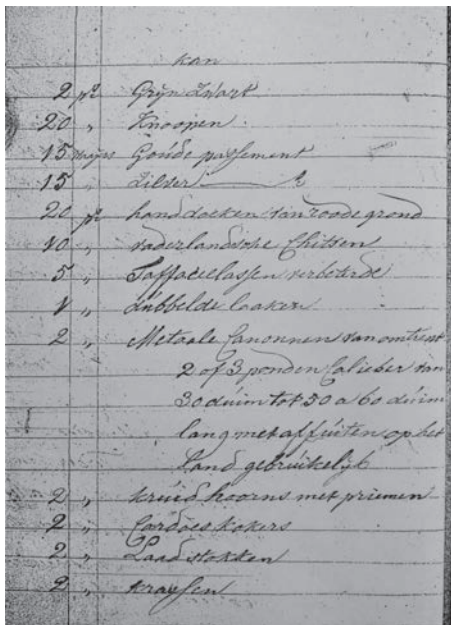 kan
2 ps Grijn Zwart
20 " Knoopen
15 Goude passement
15 " Zilver
20 ps handdoeken van roode grond
10 " vaderlandsche Chitsen
5 " Taffacelassen verbeterde
1 " dubbelde laaken
2 " Metaale Canonnen van omtrent
2 of 3 ponden Calieber van
30 duim tot 50 a 60 duim
lang met affuiten op het
Land gebruikelijk
2 " kruid hoorns met priemen
2 " Cardoes kokers
2 " Laad stokken
2 " krassen